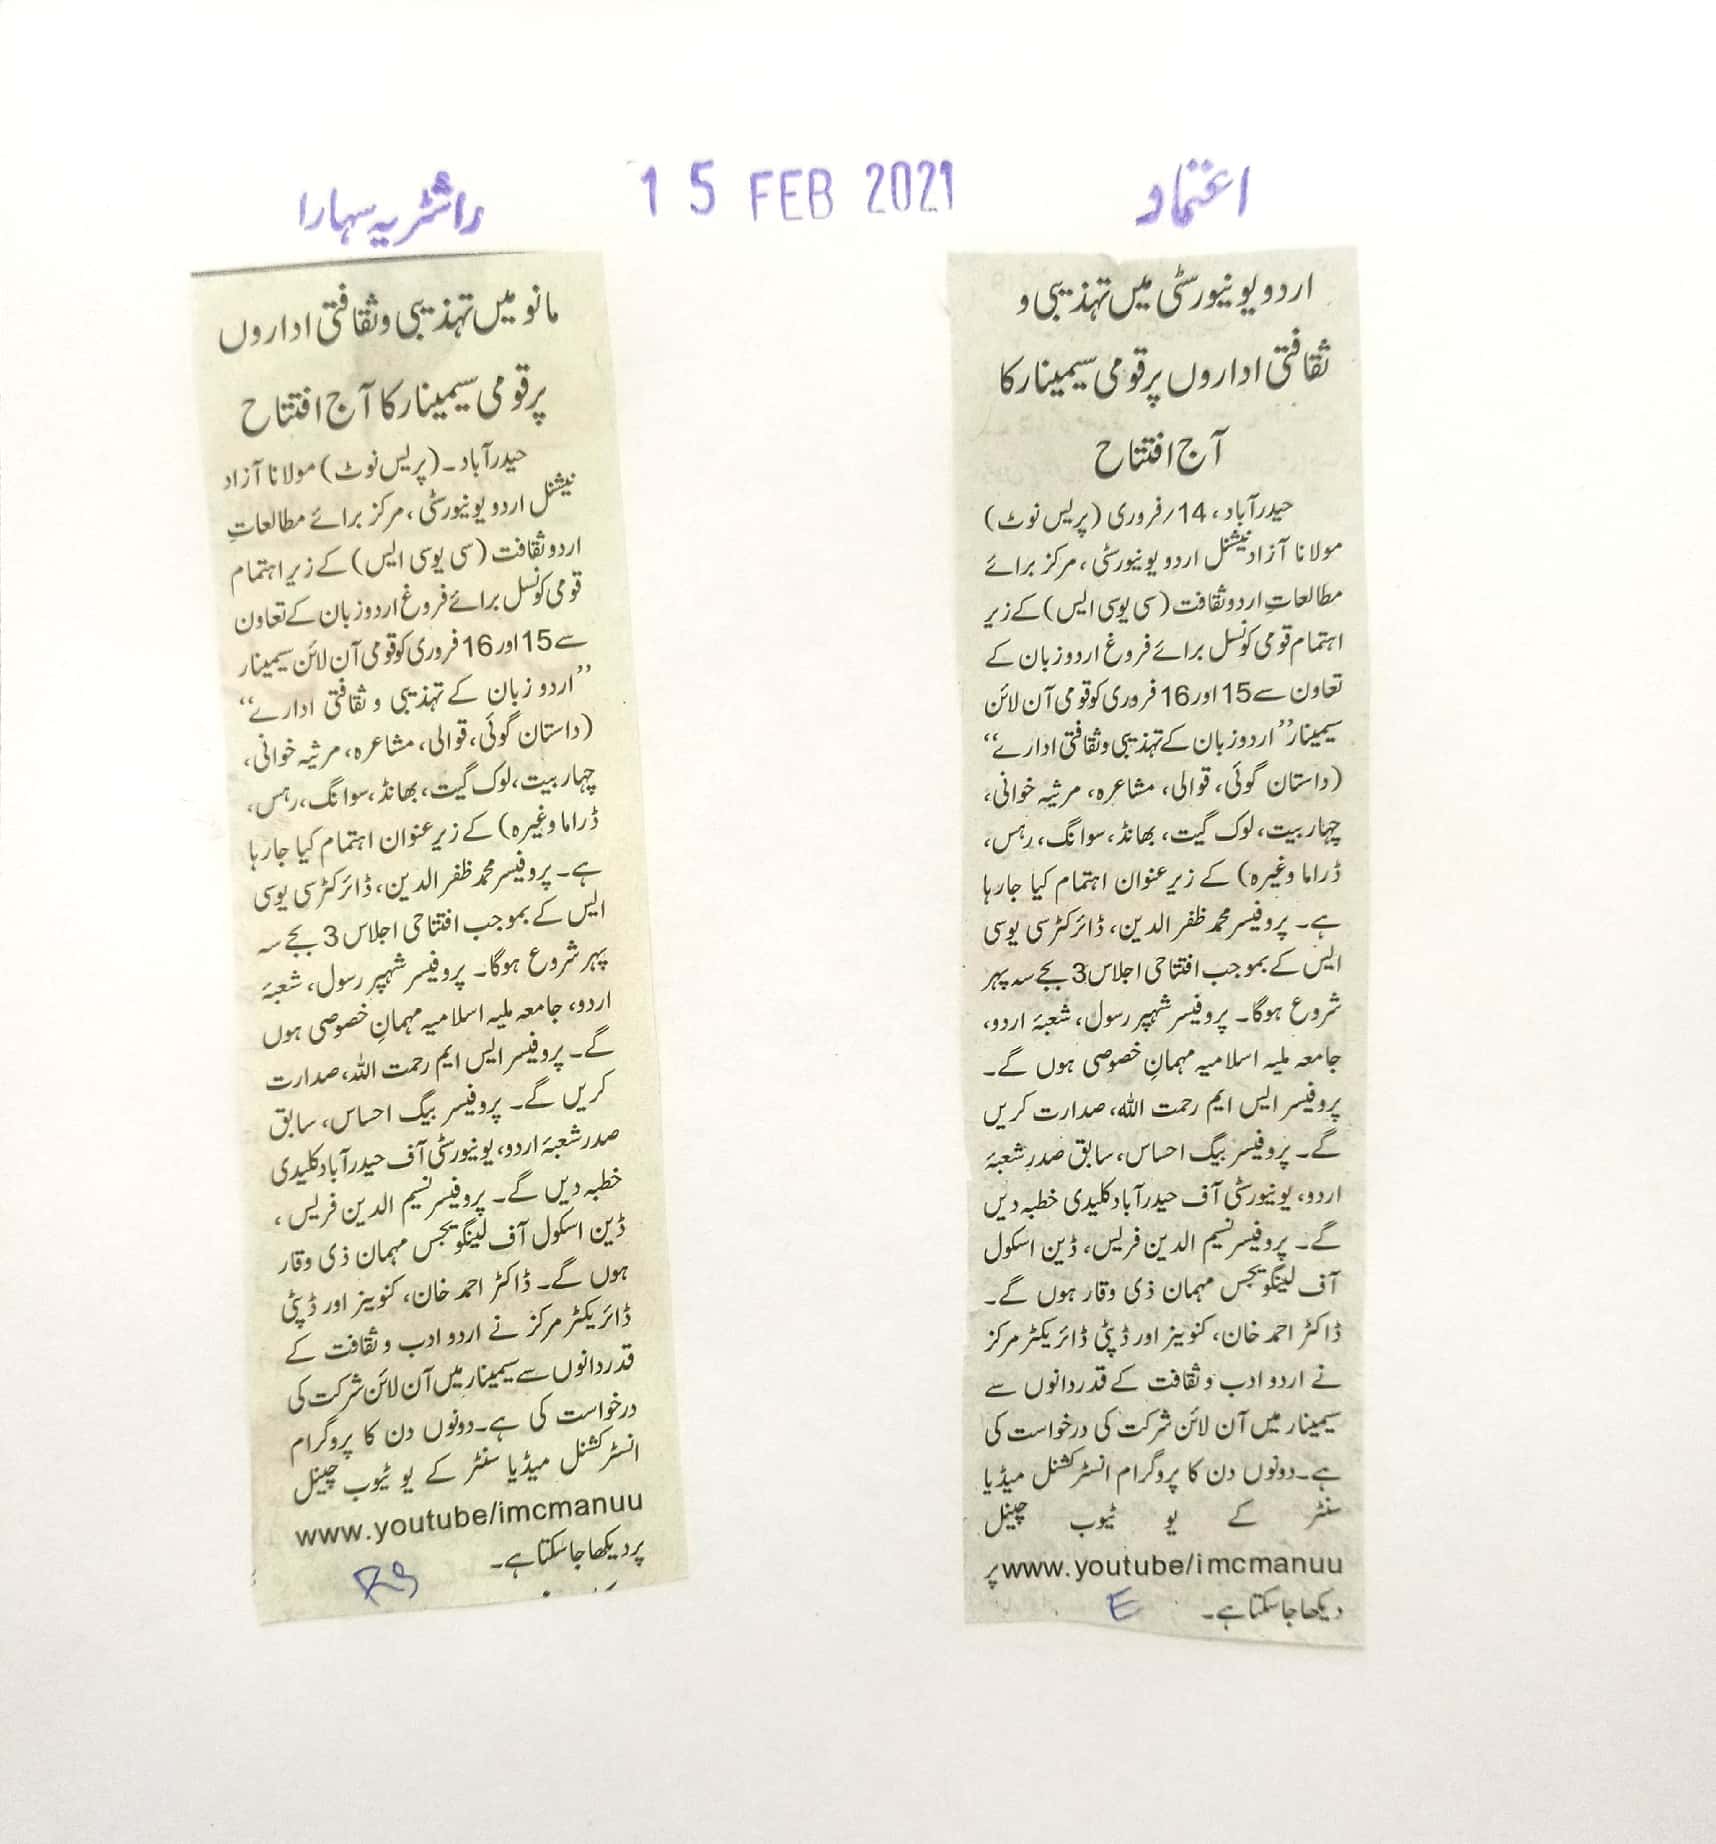 راشٹریہ سہارا
15 FEB 2021
اعتماد
مانو میں تہذیبی و ثقافتی اداروں
پر قومی سیمینار کا آج افتتاح
حیدرآباد۔(پریس نوٹ) مولانا آزاد
نیشنل اردو یونیورسٹی، مرکز برائے مطالعاتِ
اردو ثقافت (سی یو سی ایس) کے زیر اہتمام
قومی کونسل برائے فروغ اردو زبان کے تعاون
سے 15 اور 16 فروری کو قومی آن لائن سیمینار
’’اردو زبان کے تہذیبی و ثقافتی ادارے‘‘
(داستان گوئی، قوالی، مشاعرہ، مرثیہ خوانی،
چہار بیت، لوک گیت، بھانڈ، سوانگ، رہس،
ڈراما وغیرہ) کے زیر عنوان اہتمام کیا جارہا
ہے۔ پروفیسر محمد ظفر الدین، ڈائرکٹر سی یو سی
ایس کے بموجب افتتاحی اجلاس 3 بجے سہ
پہر شروع ہوگا۔ پروفیسر شہپر رسول، شعبۂ
اردو، جامعہ ملیہ اسلامیہ مہمانِ خصوصی ہوں
گے۔ پروفیسر ایس ایم رحمت اللہ، صدارت
کریں گے۔ پروفیسر بیگ احساس، سابق
صدر شعبۂ اردو، یونیورسٹی آف حیدرآباد کلیدی
خطبہ دیں گے۔ پروفیسر نسیم الدین فریس،
ڈین اسکول آف لینگویجس مہمان ذی وقار
ہوں گے۔ ڈاکٹر احمد خان، کنوینر اور ڈپٹی
ڈائریکٹر مرکز نے اردو ادب و ثقافت کے
قدردانوں سے سیمینار میں آن لائن شرکت کی
درخواست کی ہے۔دونوں دن کا پروگرام
انسٹرکشنل میڈیا سنٹر کے یو ٹیوب چینل
www.youtube/imcmanuu
پر دیکھا جاسکتا ہے۔
RS
اردو یونیورسٹی میں تہذیبی و
ثقافتی اداروں پر قومی سیمینار کا
آج افتتاح
حیدرآباد، 14؍فروری (پریس نوٹ)
مولانا آزاد نیشنل اردو یونیورسٹی، مرکز برائے
مطالعاتِ اردو ثقافت (سی یو سی ایس) کے زیر
اہتمام قومی کونسل برائے فروغ اردو زبان کے
تعاون سے 15 اور 16 فروری کو قومی آن لائن
سیمینار ’’اردو زبان کے تہذیبی و ثقافتی ادارے‘‘
(داستان گوئی، قوالی، مشاعرہ، مرثیہ خوانی،
چہار بیت، لوک گیت، بھانڈ، سوانگ، رہس،
ڈراما وغیرہ) کے زیر عنوان اہتمام کیا جارہا
ہے۔ پروفیسر محمد ظفر الدین، ڈائرکٹر سی یو سی
ایس کے بموجب افتتاحی اجلاس 3 بجے سہ پہر
شروع ہوگا۔ پروفیسر شہپر رسول، شعبۂ اردو،
جامعہ ملیہ اسلامیہ مہمانِ خصوصی ہوں گے۔
پروفیسر ایس ایم رحمت اللہ، صدارت کریں
گے۔ پروفیسر بیگ احساس، سابق صدر شعبۂ
اردو، یونیورسٹی آف حیدرآباد کلیدی خطبہ دیں
گے۔ پروفیسر نسیم الدین فریس، ڈین اسکول
آف لینگویجس مہمان ذی وقار ہوں گے۔
ڈاکٹر احمد خان، کنوینر اور ڈپٹی ڈائریکٹر مرکز
نے اردو ادب و ثقافت کے قدردانوں سے
سیمینار میں آن لائن شرکت کی درخواست کی
ہے۔دونوں دن کا پروگرام انسٹرکشنل میڈیا
سنٹر کے یو ٹیوب چینل
www.youtube/imcmanuu پر
دیکھا جاسکتا ہے۔
E